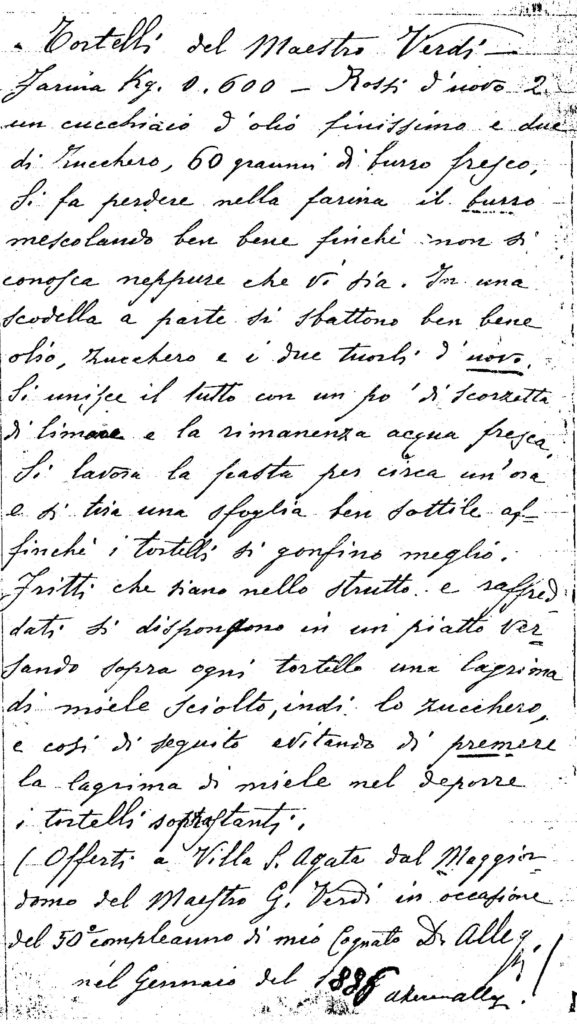 Tortelli del Maestro Verdi
Farina Kg. 0.600 – Rossi d'uovo 2
un cucchiaio d'olio finissimo e due
di Zucchero, 60 grammi di burro fresco.
Si fa perdere nella farina il burro
mescolando ben bene finchè non si
conosca neppure che vi sia. In una
scodella a parte si sbattono ben bene
olio, zucchero e i due tuorli d'uovo.
Si unisce il tutto con un po' di scorzetta
di limone e la rimanenza acqua fresca.
Si lavora la pasta per circa un'ora
e si tira una sfoglia ben sottile af-
finchè i tortelli si gonfino meglio.
Fritti che siano nello strutto e raffred-
dati si dispongono in un piatto ver-
sando sopra ogni tortello una lagrima
di miele sciolto, indi lo zucchero,
e così di seguito evitando di premere
la lagrima di miele nel deporre
i tortelli soprastanti.
(Offerti a Villa S. Agata dal Maggior-
domo del Maestro G. Verdi in occasione
del 50° compleanno di mio Cognato Dr. Alleg.
nel Gennaio del 1886